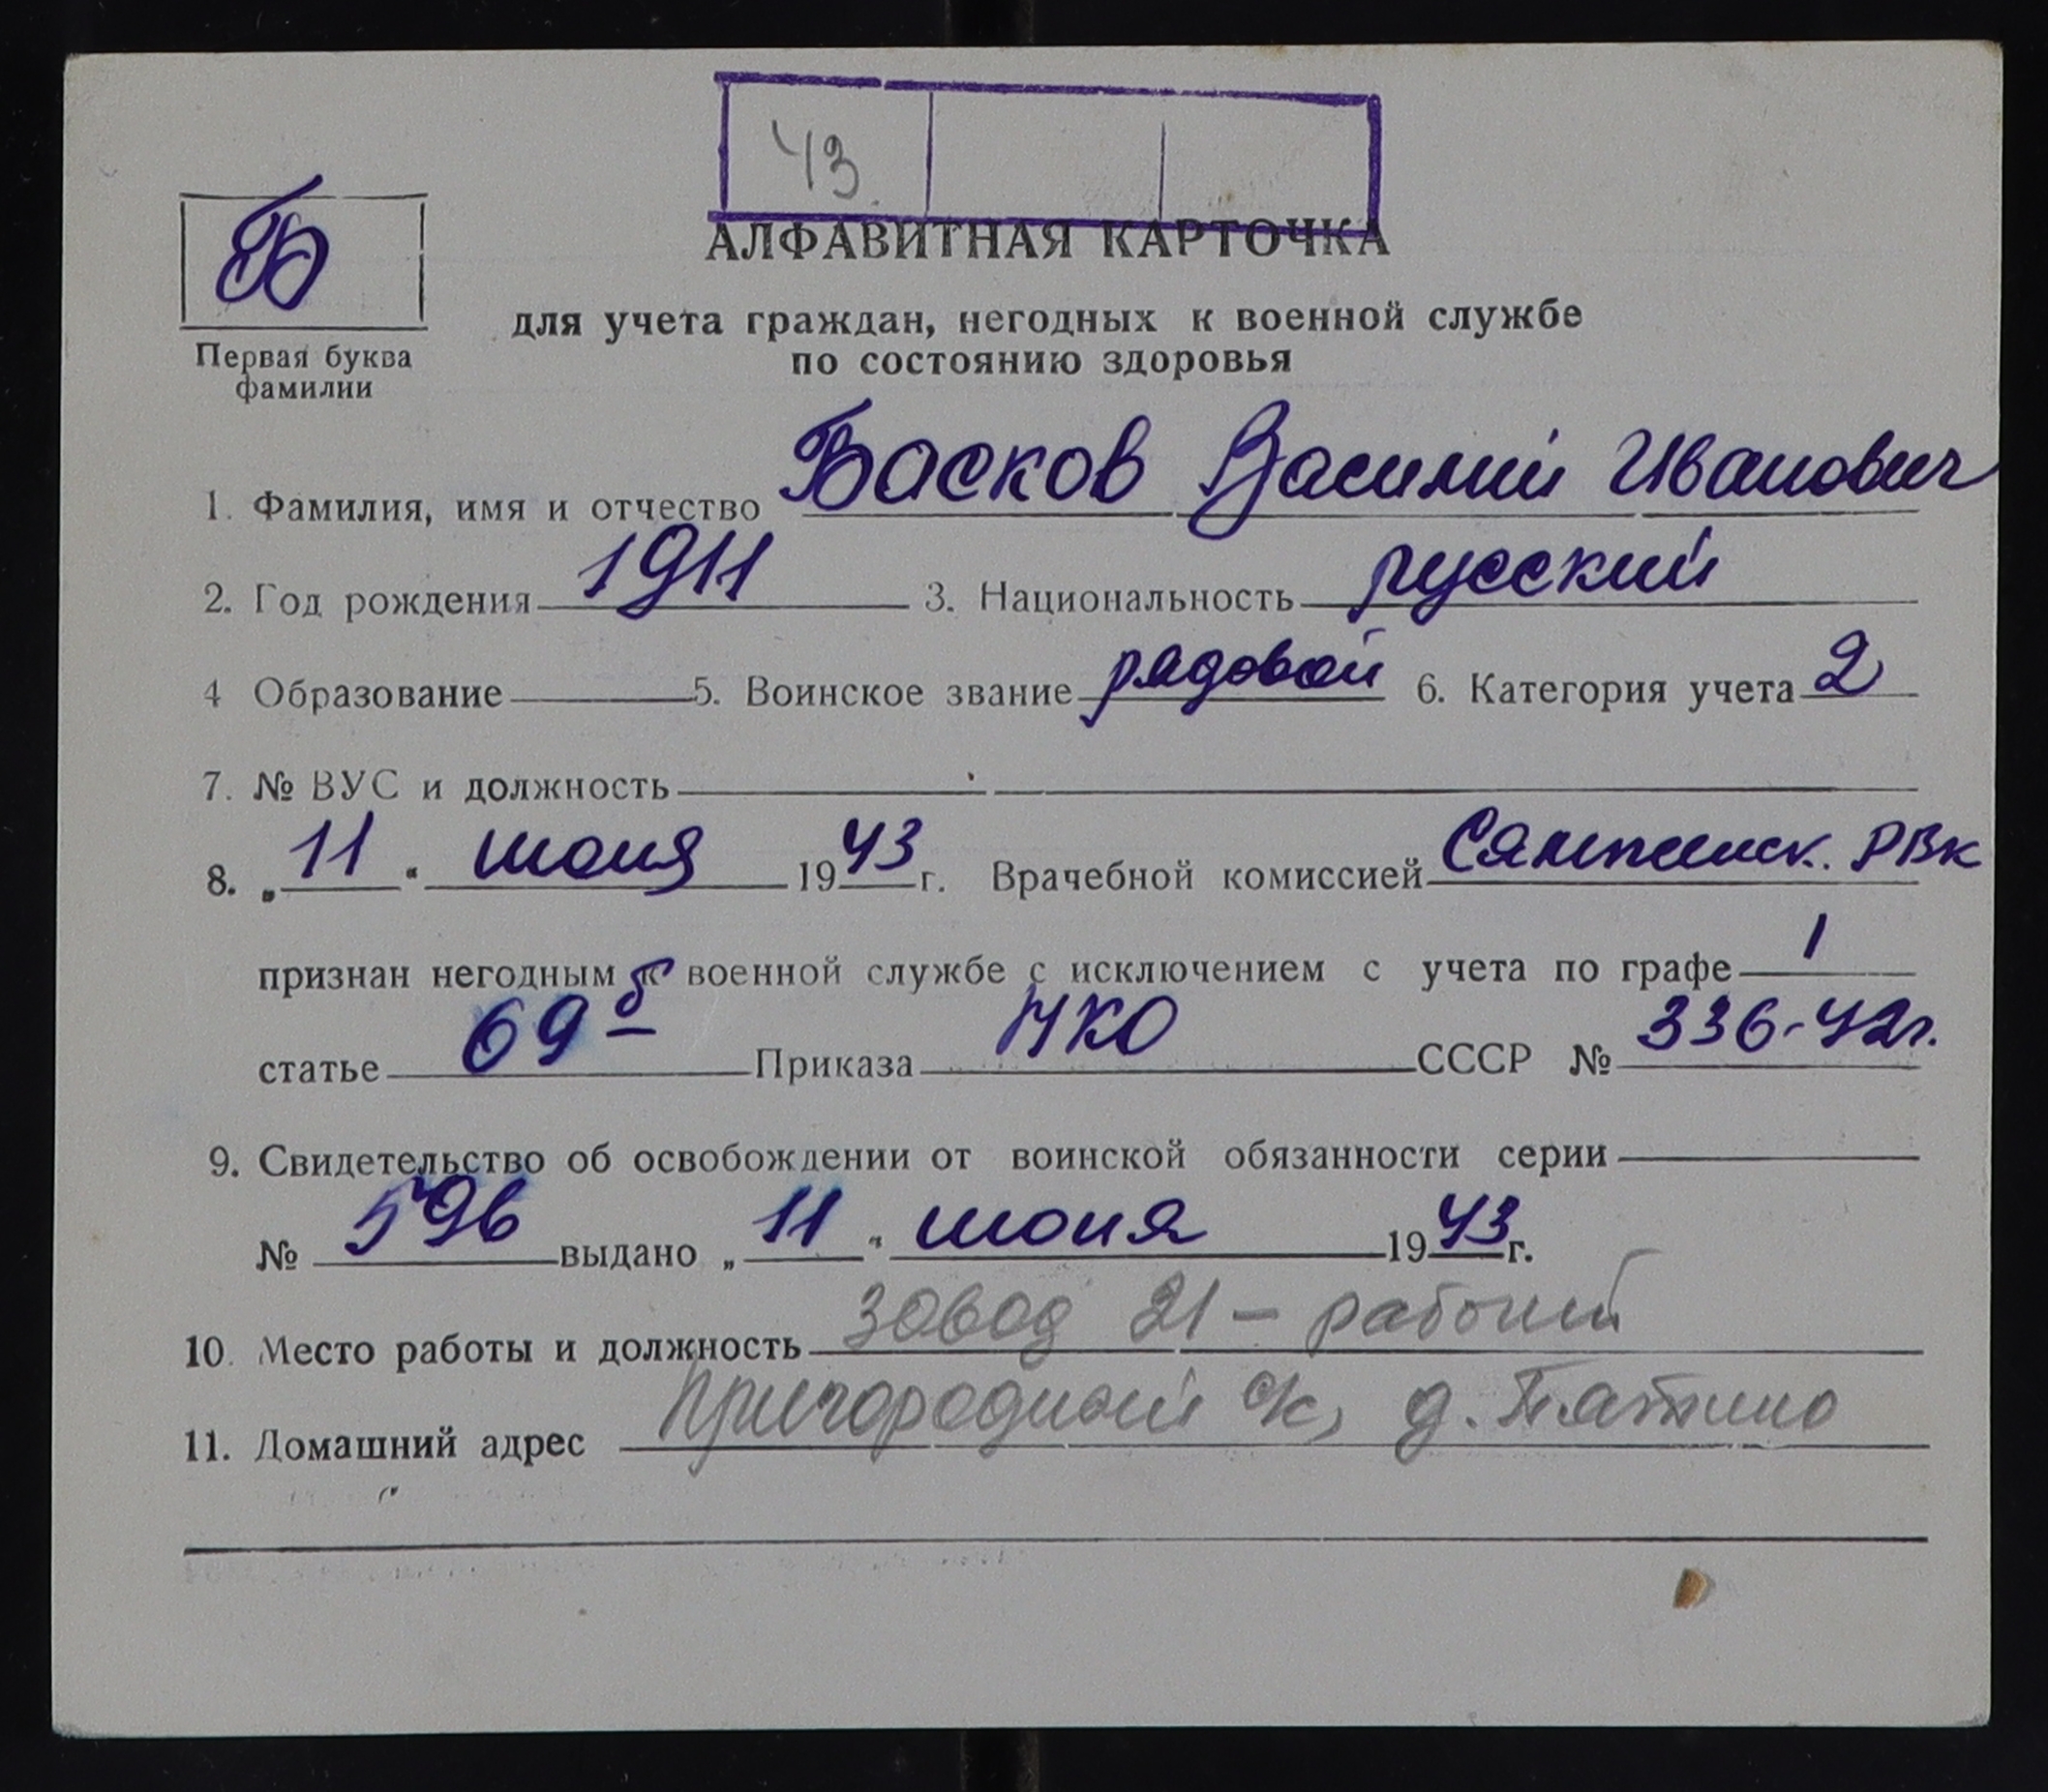 43
Б
Первая буква
фамилии
АЛФАВИТНАЯ КАРТОЧКА
для учета граждан, негодных к военной службе
по состоянию здоровья
1. Фамилия, имя и отчество Басков Василий Иванович
2. Год рождения 1911 3. Национальность русский
4 Образование 5. Воинское звание рядовой 6. Категория учета 2
7. № ВУС и должность
8. „11“ июня 1943 г. Врачебной комиссией Сямженск. РВК
признан негодным к военной службе с исключением с учета по графе 1
статье 69б Приказа НКО СССР № 336-42г.
9. Свидетельство об освобождении от воинской обязанности серии
№ 596 выдано „11“ июня 1943 г.
10. Место работы и должность завод 21 - рабочий
11. Домашний адрес Пригородный с/с, д.